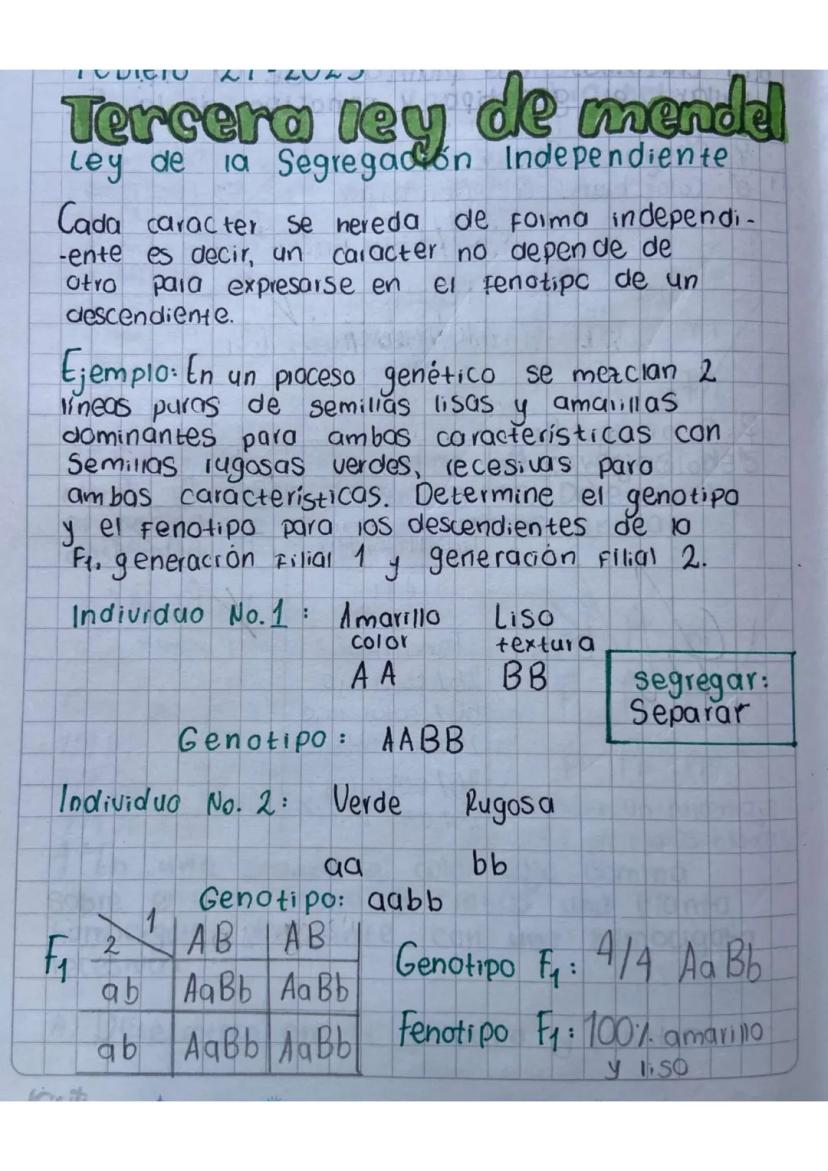 Febrero 21-2023
Tercera ley de mendel
Ley de la Segregación Independiente
Cada caracter se hereda de forma independi-
-ente es decir, un caracter no depende de
otro para expresarse en el fenotipo de un
descendiente.
Ejemplo: En un proceso genético se mezclan 2
líneas puras de semillas lisas y amarillas
dominantes para ambas características con
Semillas rugosas verdes, recesivas para
ambas características. Determine el genotipo
y el fenotipo para los descendientes de la
F1, generación Filial 1 y generación Filial 2.
Individuo No. 1 : Amarillo Liso
color textura
AA BB
segregar:
Separar
Genotipo : AABB
Individuo No. 2 : Verde Rugosa
aa bb
Genotipo: aabb
F1 2 1 AB AB
ab AaBb AaBb
ab AaBb AaBb
Genotipo F1 : 4/4 AaBb
Fenotipo F1 : 100% amarillo
y liso